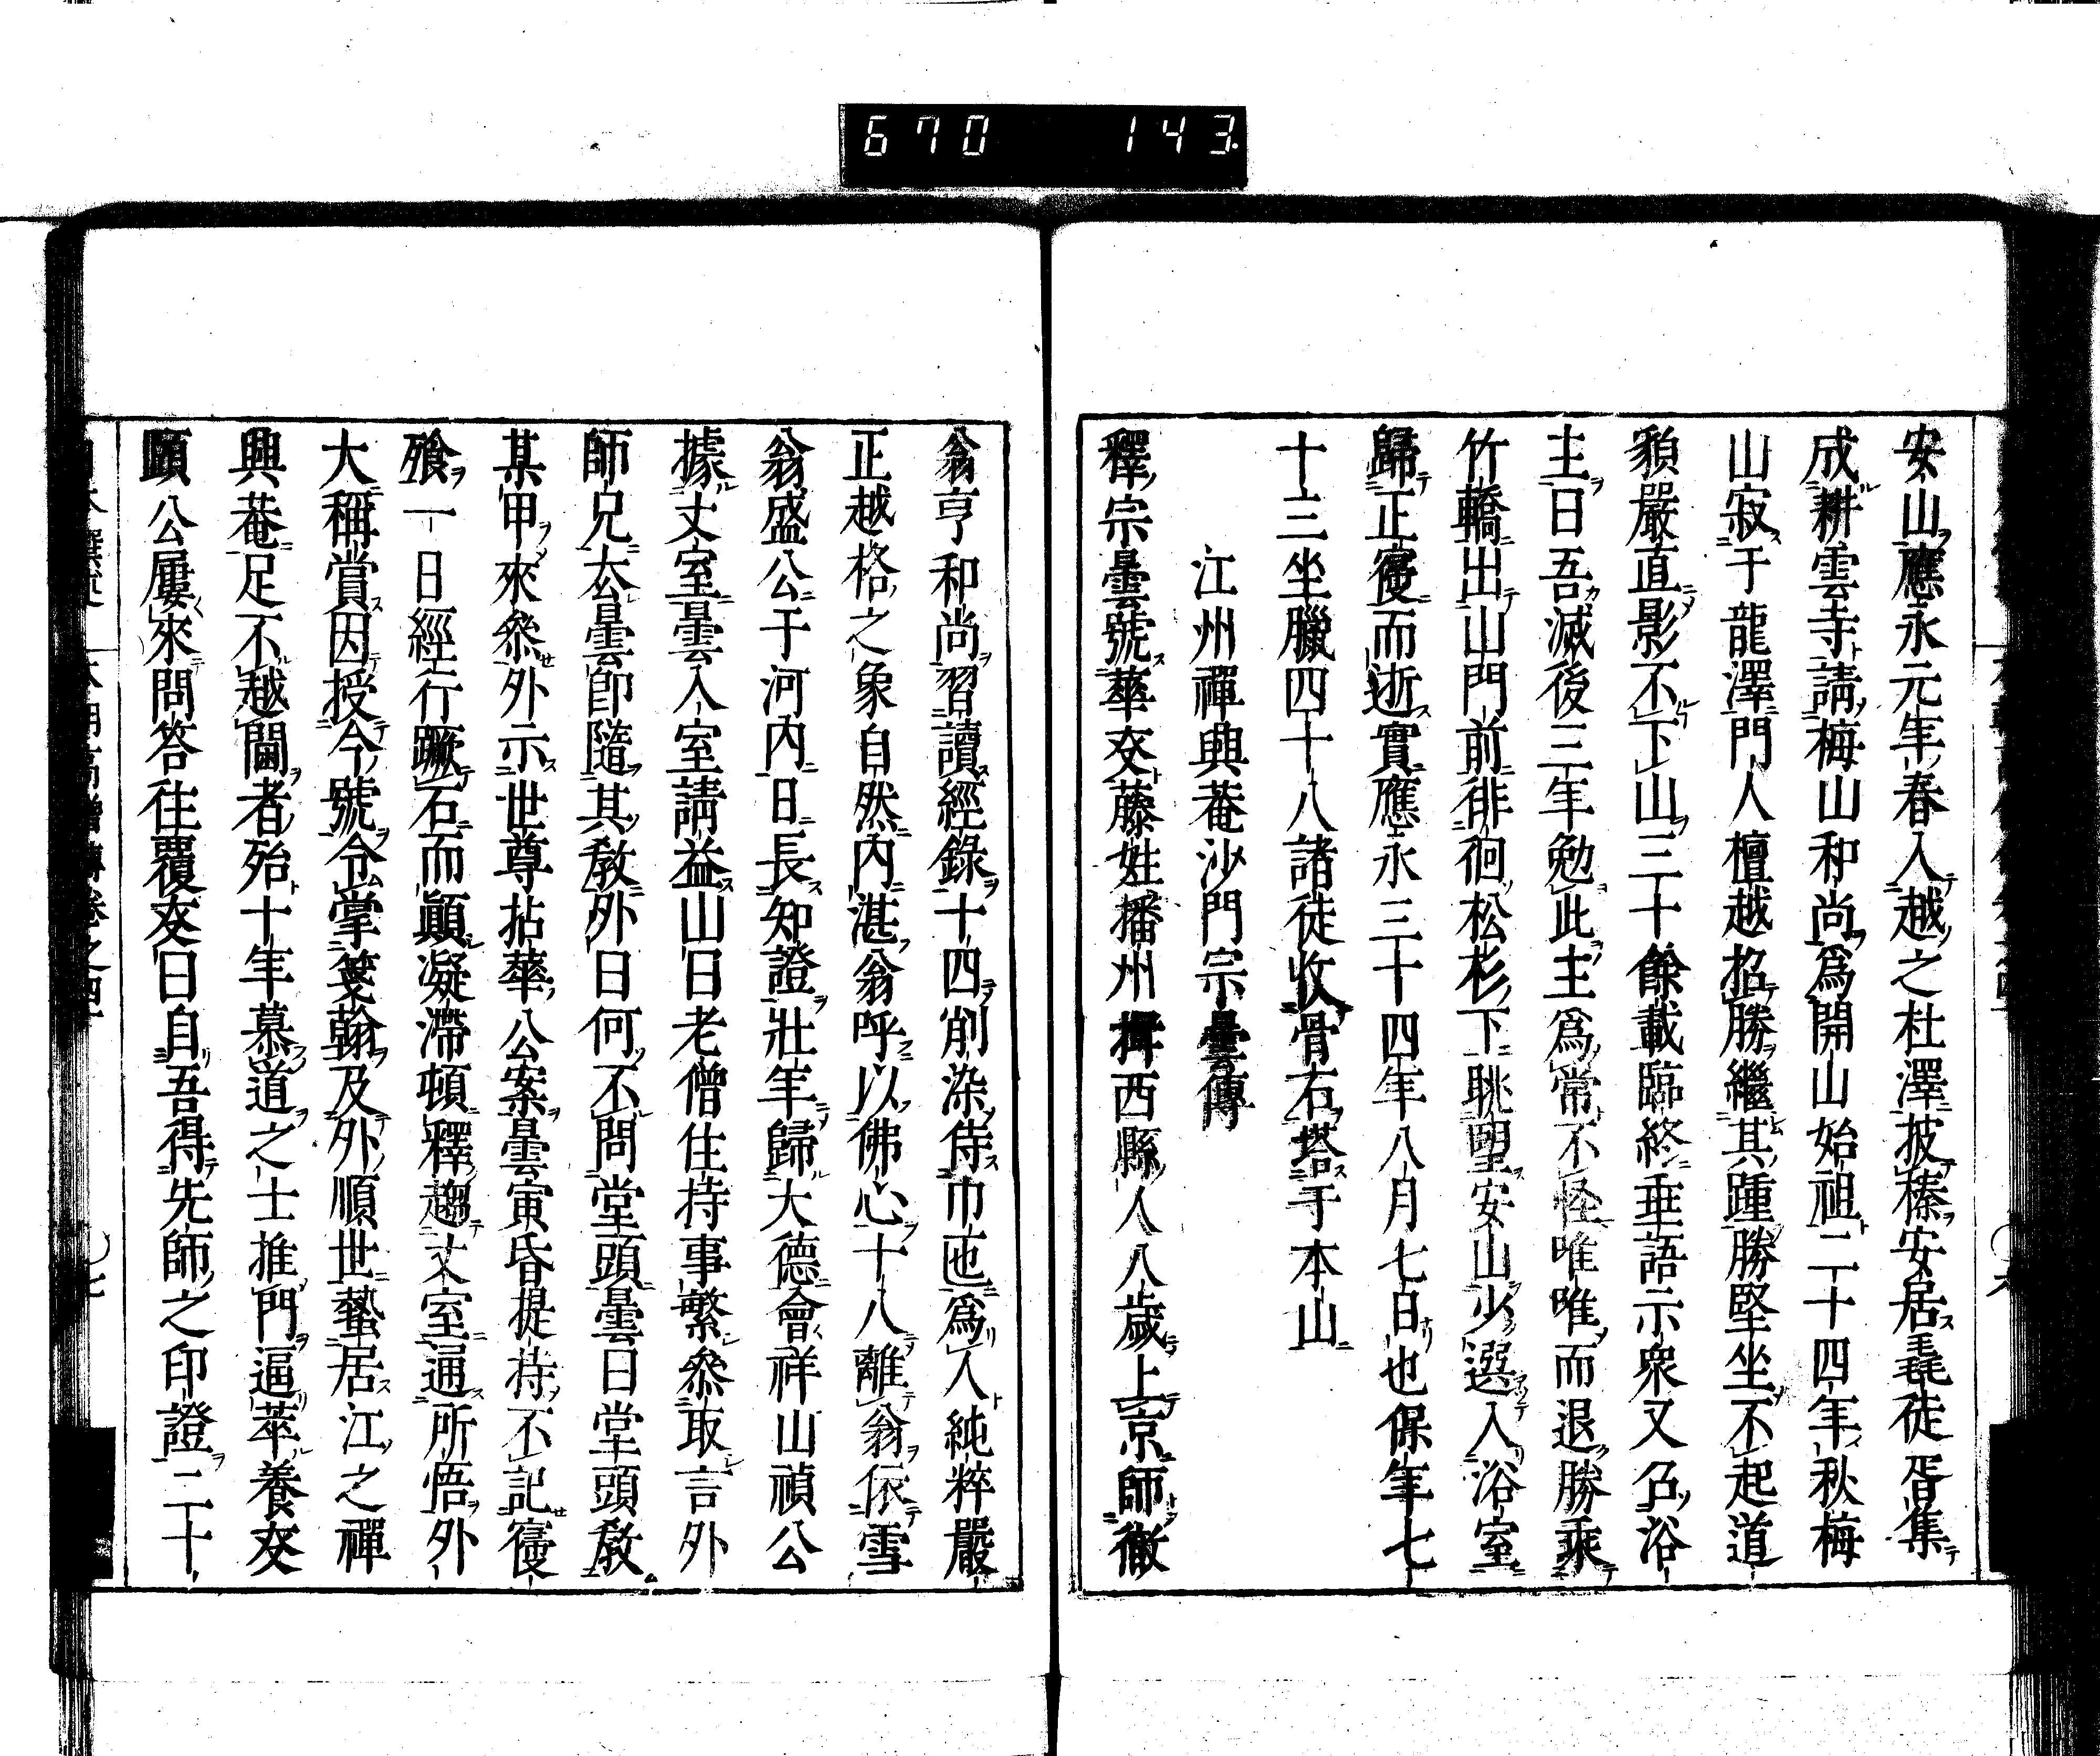 670 143
安山應永元年春入越之杜澤披榛安居毳徒胥集
成耕雲寺請梅山和尚爲開山始祖二十四年秋梅
山寂于龍澤門人檀越招勝繼其踵勝堅坐不起道
貌嚴直影不下山三十餘載臨終垂語示衆又召浴
主曰吾滅後三年勉此主爲常不怪唯唯而退勝乘
竹轎出山門前徘徊松杉下眺望安山少選入浴室
歸正寢而逝實應永三十四年八月七日也保年七
十三坐臘四十八諸徒收骨右塔于本山
江州禪興菴沙門宗曇傳
釋宗曇號華叜藤姓播州揖西縣人八歲上京師徹
翁亨和尚習讀經錄十四削染侍巾匜爲人純粹嚴
正越格之象自然內湛翁呼以佛心十八離翁依雪
翁盛公于河內日長知證壯年歸大德會祥山禎公
據丈室曇入室請益山曰老僧住持事繁叅取言外
師兄去曇卽隨其敎外曰何不問堂頭曇曰堂頭敎
某甲來叅外示世尊拈華公案曇寅昏提持不記寢
飱一日經行蹶石而顚凝滯頓釋趨丈室通所悟外
大稱賞因授今號令掌箋翰及外順世蟄居江之禪
興菴足不越閫者殆十年慕道之士推門逼萃養叜
頤公屢來問答往覆叜曰自吾得先師之印證二十